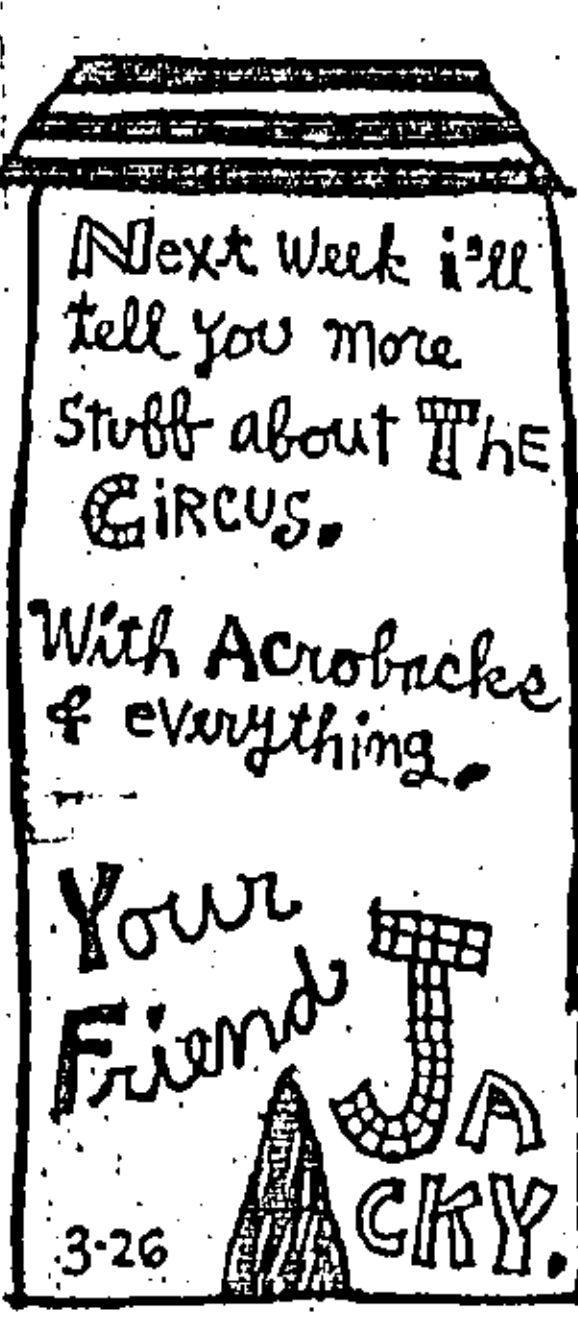 Next Week i'll
tell you more
Stuff about ThE
CiRCUS.
With Acrobacks
& everything.
Your
Friend
JACKY.
3-26